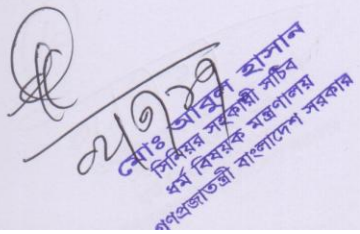 মোঃ আবুল হাসান
সিনিয়র সহকারী সচিব
ধর্ম বিষয়ক মন্ত্রণালয়
গণপ্রজাতন্ত্রী বাংলাদেশ সরকার